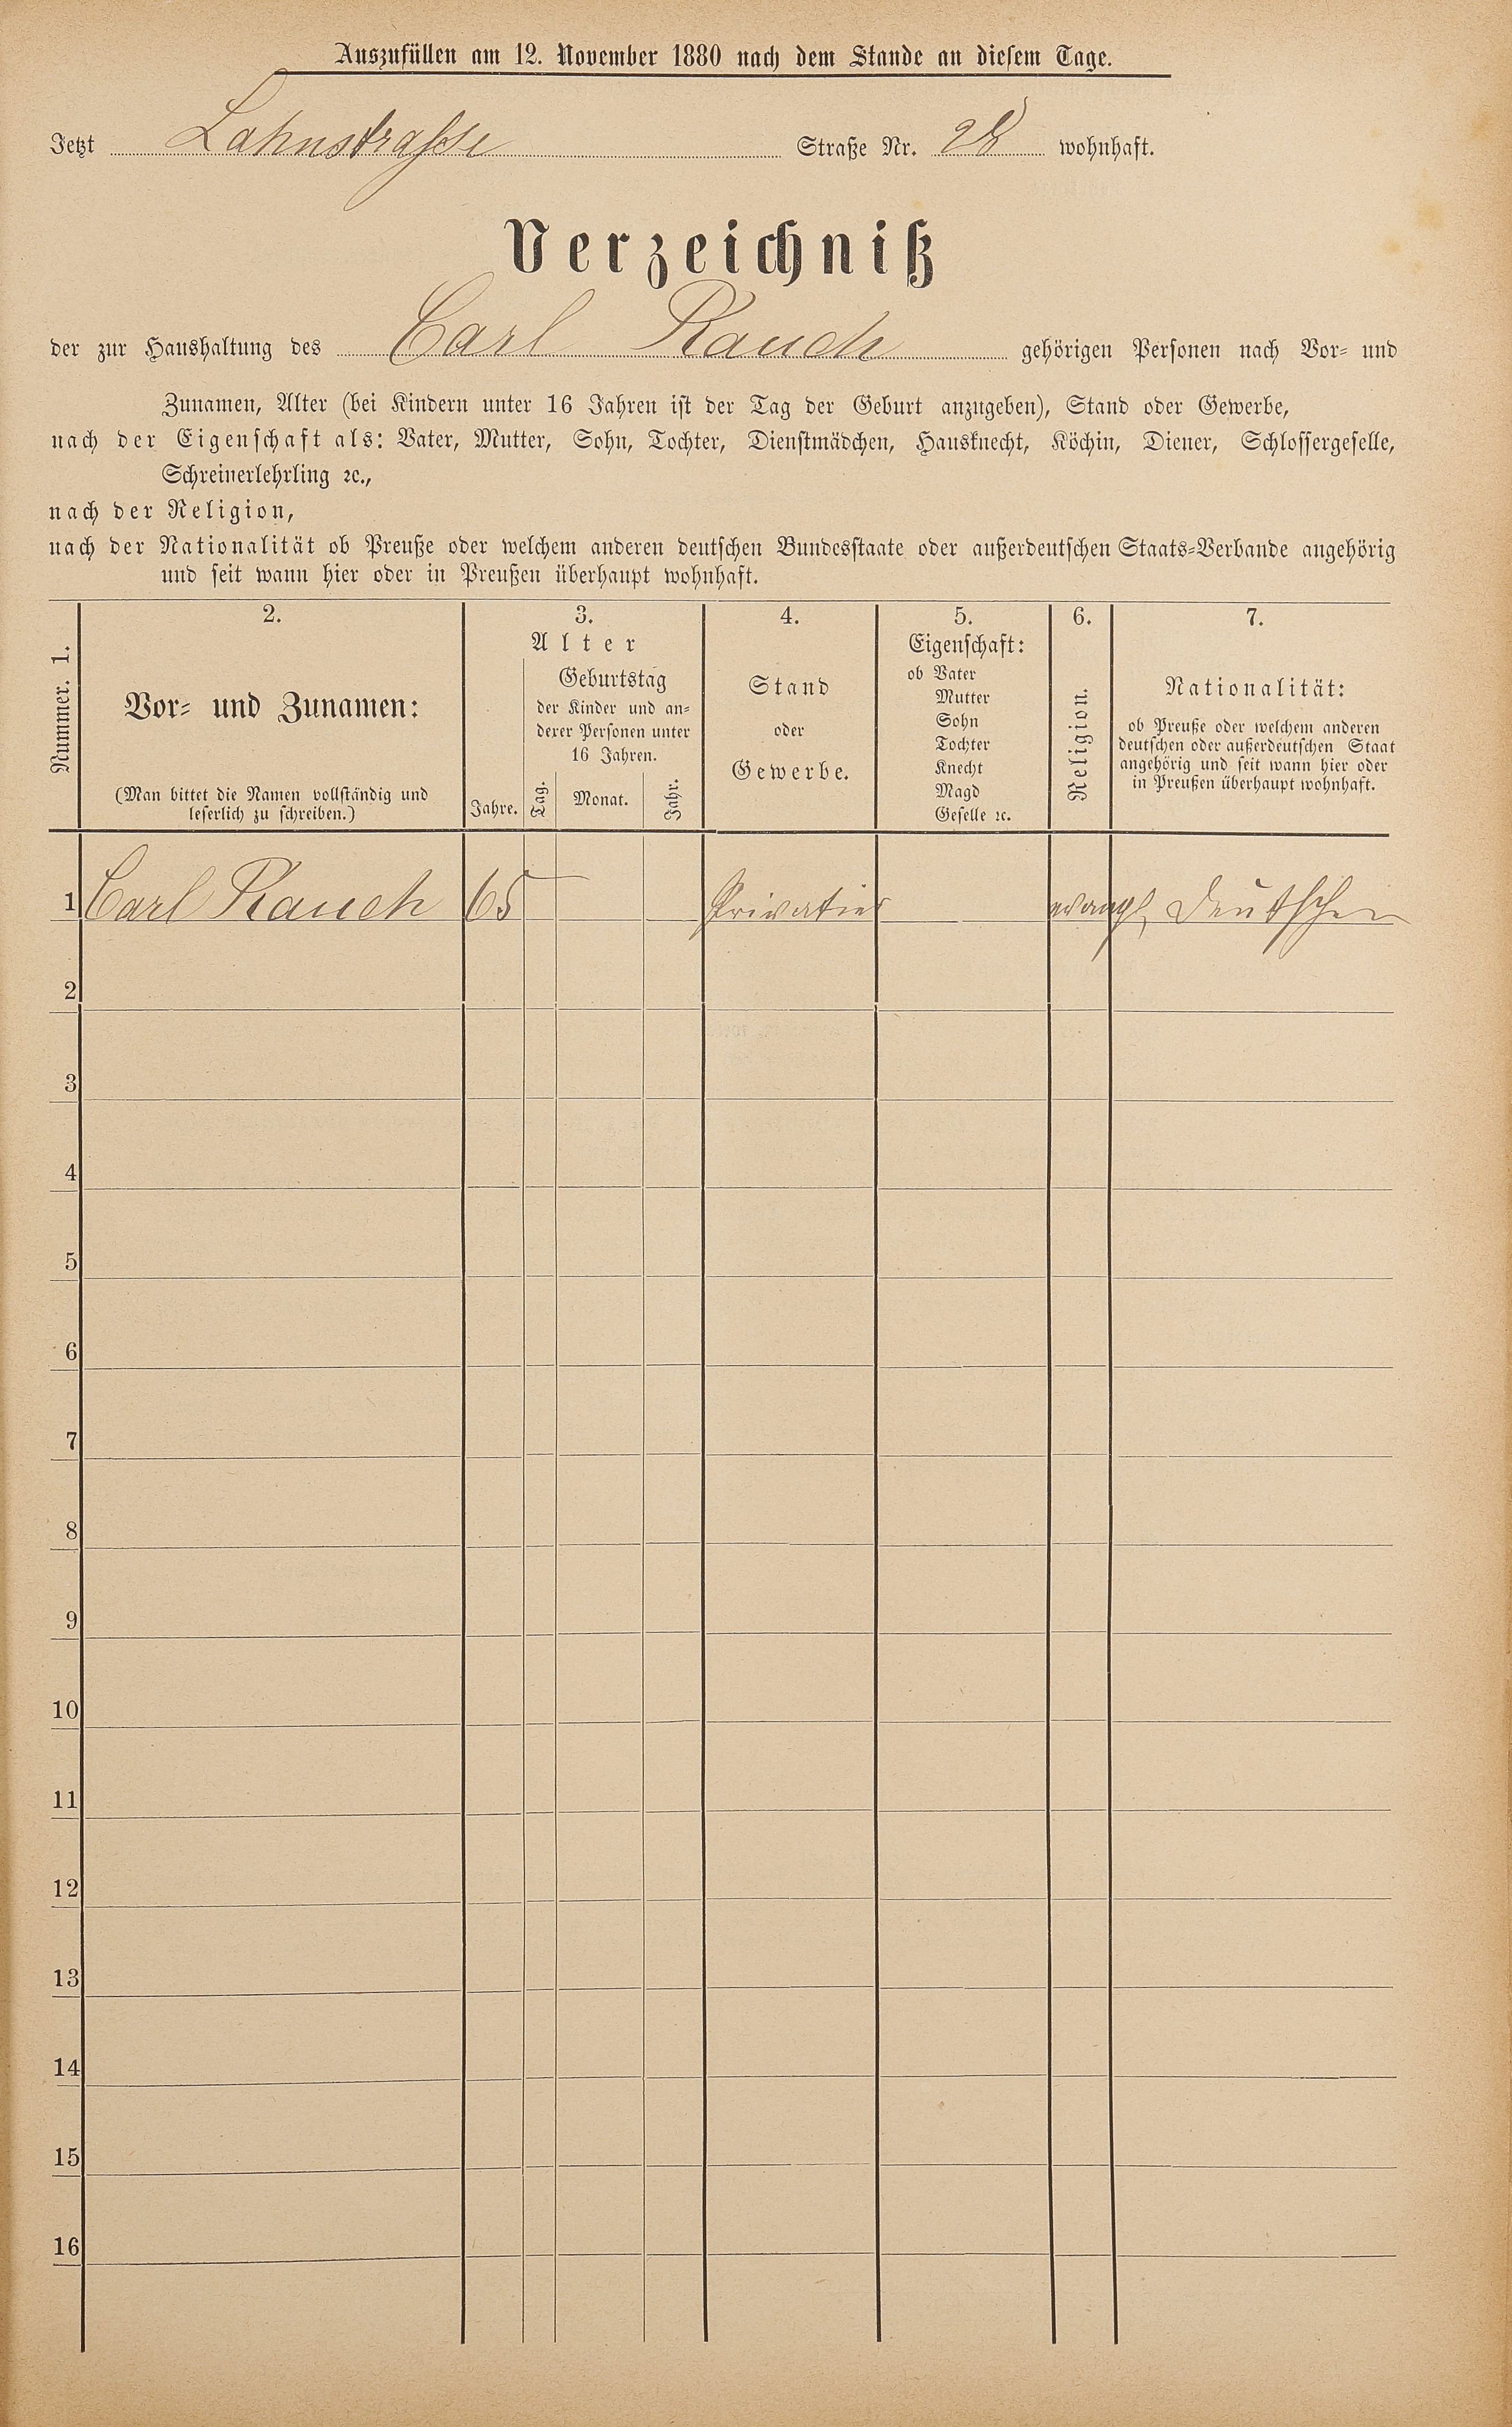 Auszufüllen am 12. November 1880 nach dem Stande an diesem Tage.
Jetzt Lahnstraße Straße Nr. 28 wohnhaft.
Verzeichniß
der zur Haushaltung des Carl Rauch gehörigen Personen nach Vor- und
Zunamen, Alter (bei Kindern unter 16 Jahren ist der Tag der Geburt anzugeben), Stand oder Gewerbe,
nach der Eigenschaft als: Vater, Mutter, Sohn, Tochter, Dienstmädchen, Hausknecht, Köchin, Diener, Schlossergeselle,
Schreinerlehrling ꝛc.,
nach der Religion,
nach der Nationalität ob Preuße oder welchem anderen deutschen Bundesstaate oder außerdeutschen Staats-Verbande angehörig
und seit wann hier oder in Preußen überhaupt wohnhaft.
Nummer. 1.
2.
Vor- und Zunamen:
(Man bittet die Namen vollständig und
leserlich zu schreiben.)
3.
Alter
Jahre.
Geburtstag
der Kinder und an-
derer Personen unter
16 Jahren.
Tag. Monat. Jahr.
4.
Stand
oder
Gewerbe.
5.
Eigenschaft:
ob Vater
Mutter
Sohn
Tochter
Knecht
Magd
Geselle ꝛc.
6.
Religion.
7.
Nationalität:
ob Preuße oder welchem anderen
deutschen oder außerdeutschen Staat
angehörig und seit wann hier oder
in Preußen überhaupt wohnhaft.
1 Carl Rauch 65 Privatier evangl. Deutscher
2
3
4
5
6
7
8
9
10
11
12
13
14
15
16